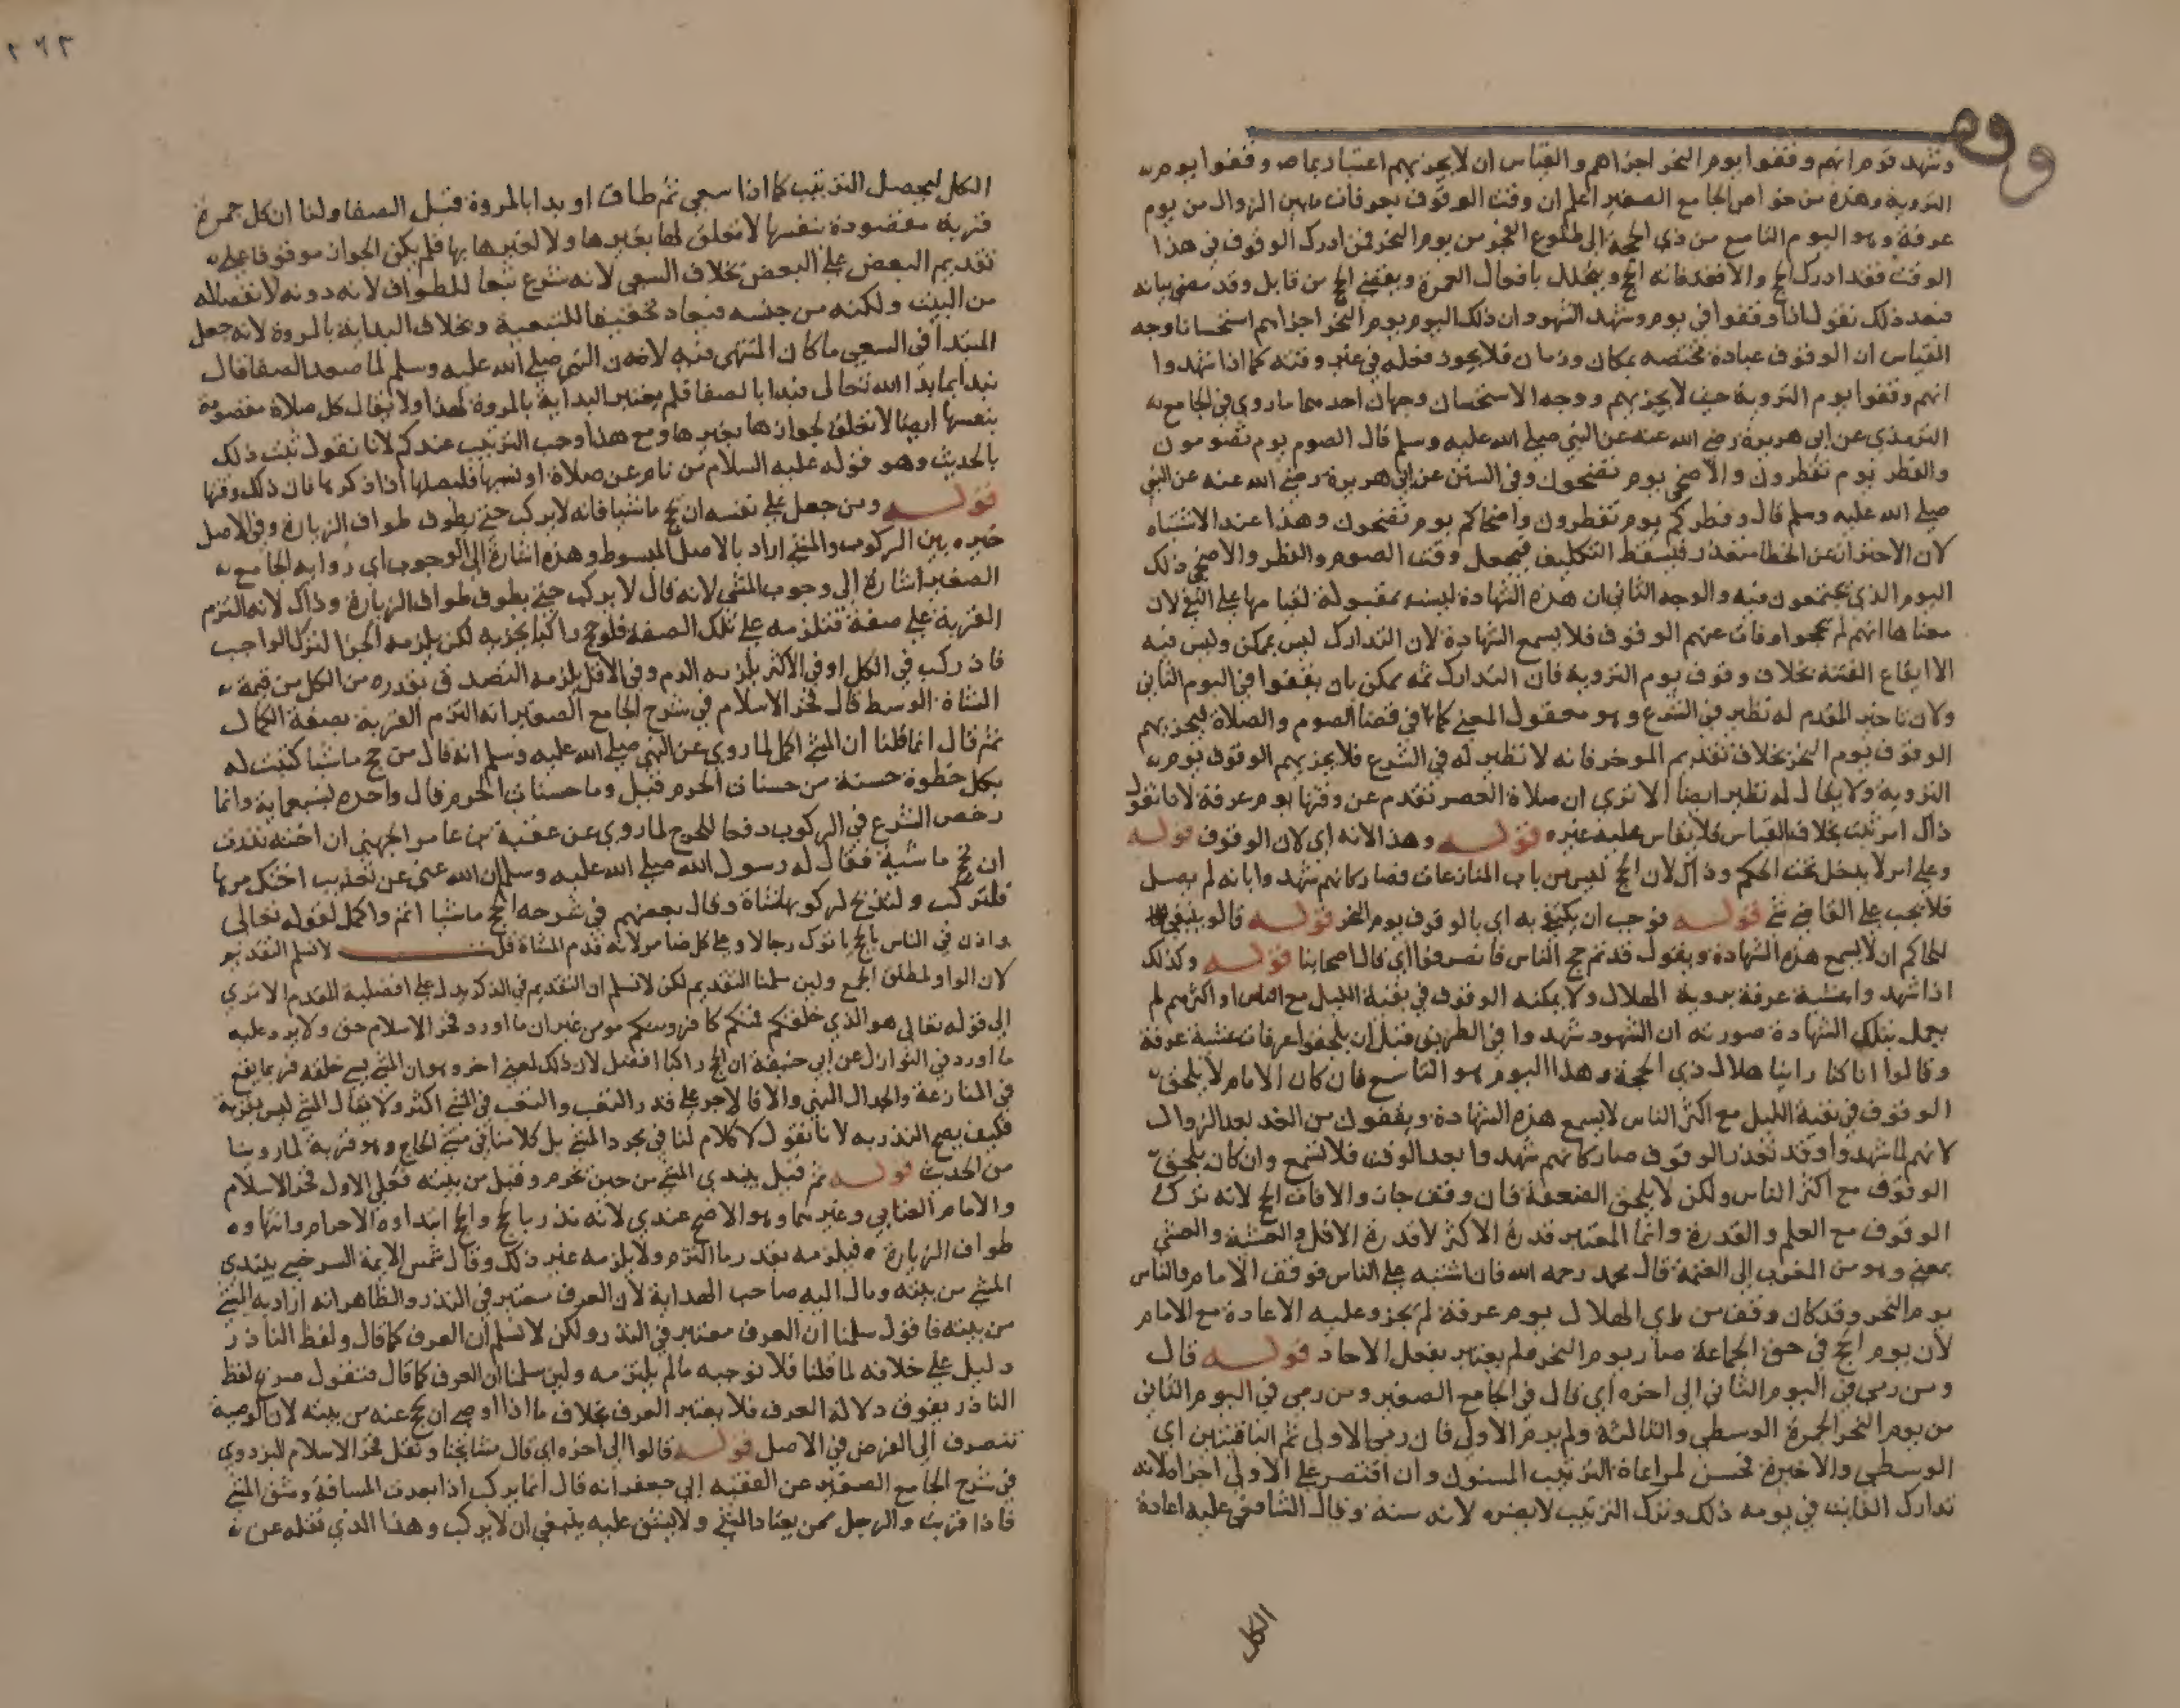 وقف
وشهد قوم انهم وقفوا يوم النحر اجزاهم والقياس ان لا يجزيهم اعتبارا بما وقفوا يوم
التروية وهذه من خواص الجامع الصغير اعلم ان وقت الوقوف بعرفات ما بين الزوال من يوم
عرفة وهو اليوم التاسع من ذي الحجة الى طلوع الفجر من يوم النحر فمن ادرك الوقوف في هذا
الوقت فقد ادرك الحج والا فقد فاته الحج ويتحلل بافعال العمرة ويقضي الحج من قابل وقد مضى بيانه
فبعد ذلك نقول اذا وقفوا في يوم وشهد الشهود ان ذلك اليوم يوم النحر اجزاهم استحسانا وجه
القياس ان الوقوف عبادة مختصه بمكان وزمان فلا يجوز فعله في غير وقته كما اذا شهدوا
انهم وقفوا يوم التروية حيث لا يجزيهم ووجه الاستحسان وجهان احدهما ما روي في الجامع
الترمذي عن ابي هريرة رضي الله عنه عن النبي صلى الله عليه وسلم قال الصوم يوم تصومون
والفطر يوم تفطرون والاضحى يوم تضحون وفي السنن عن ابي هريرة رضي الله عنه عن النبي
صلى الله عليه وسلم قال وفطركم يوم تفطرون واضحاكم يوم تضحون وهذا عند الاشتباه
لان الاحتراز عن الخطا متعذر فيسقط التكليف فيجعل وقت الصوم والفطر والاضحى ذلك
اليوم الذي يجتمعون فيه والوجه الثاني ان هذه الشهادة ليست بمقبولة لقيامها على النفي لان
معناها انهم لم يحجوا وفات عنهم الوقوف فلا يسمع الشهادة لان التدارك ليس بممكن وليس فيه
الا ايقاع الفتنة بخلاف وقوف يوم التروية فان التدارك ثمه ممكن بان يقفوا في اليوم الثاني
ولان تاخير المقدم له نظير في الشرع وهو معقول المعنى كما في قضا الصوم والصلاة ليجزيهم
الوقوف يوم النحر بخلاف تقديم الموخر فانه لا نظير له في الشرع فلا يجزيهم الوقوف يوم
التروية ولا يقال له نظير ايضا الا تري ان صلاة العصر تقدم عن وقتها يوم عرفة لانا نقول
ذاك امر ثبت بخلاف القياس فلا يقاس عليه غيره قوله وهذا لانه اي لان الوقوف قوله
وعلى امر لا يدخل تحت الحكم وذاك لان الحج ليس من باب المنازعات فصار كانهم شهدوا بانه لم يصل
فلا يجب على القاضي شي قوله فوجب ان يكتفى به اي بالوقوف يوم النحر قوله قالو ينبغي
للحاكم ان لا يسمع هذه الشهادة ويقول قد تم حج الناس فانصرفوا اي قال اصحابنا قوله وكذلك
اذا شهدوا عشية عرفة بروية الهلال ولا يمكنه الوقوف في بقية الليل مع الناس او اكثرهم لم
يعمل بتلك الشهادة صورته ان الشهود شهدوا في الطريق قبل ان يلحقوا عرفات عشية عرفة
وقالوا انا كنا راينا هلال ذي الحجة وهذا اليوم هو التاسع فان كان الامام لا يلحق
الوقوف في بقية الليل مع اكثر الناس لا يسمع هذه الشهادة ويقفون من الغد بعد الزوال
لانهم لما شهدوا وقد تعذر الوقوف صار كانهم شهدوا بعد الوقت فلا تسمع وان كان يلحق
الوقوف مع اكثر الناس ولكن لا يلحق الضعفة فان وقف جاز والا فات الحج لانه ترك
الوقوف مع العلم والقدرة وانما المعتبر قدرة الاكثر لا قدرة الاقل والعشية والعشي
بمعنى وهو من المغرب الى العتمة قال محمد رحمه الله فان اشتبه على الناس فوقف الامام والناس
يوم النحر وقد كان وقف من راي الهلال يوم عرفة لم يجز وعليه الاعادة مع الامام
لان يوم الحج في حق الجماعة صار يوم النحر فلم يعتبر بفعل الاحاد قوله قال
ومن رمى في اليوم الثاني الى اخره اي قال في الجامع الصغير ومن رمى في اليوم الثاني
من يوم النحر الجمرة الوسطى والثالثة ولم يرم الاولى فان رمى الاولى ثم الباقيتين اي
الوسطى والاخيرة فحسن لمراعاة الترتيب المسنون وان اقتصر على الاولى اجزاه لانه
تدارك الفايت في يومه ذلك وترك الترتيب لا يضره لانه سنة وقال الشافعي عليه اعادة
الكل
٢٦٢
الكل ليحصل الترتيب كما اذا سعى ثم طاف او بدا بالمروة قبل الصفا ولنا ان كل جمرة
قربة مقصودة بنفسها لا تعلق لها بغيرها ولا لغيرها بها فلم يكن الجواز موقوفا على
تقديم البعض على البعض بخلاف السعي لانه شرع تبعا للطواف لانه دونه لانفصاله
من البيت ولكنه من جنسه فيعاد تحقيقا للتبعية وبخلاف البداية بالمروة لانه جعل
المبتدا في السعي ما كان المنتهى فيه لان النبي صلى الله عليه وسلم لما صعد الصفا قال
نبدا بما بدا الله تعالى فبدا بالصفا فلم يعتبر البداية بالمروة لهذا ولا يقال كل صلاة مقصودة
بنفسها ايضا لا تعلق لجوازها بغيرها ومع هذا وجب الترتيب عندكم لانا نقول ثبت ذلك
بالحديث وهو قوله عليه السلام من نام عن صلاة او نسيها فليصلها اذا ذكرها فان ذلك وقتها
قوله ومن جعل على نفسه ان يحج ماشيا فانه لا يركب حتى يطوف طواف الزيارة وفي الاصل
خيره بين الركوب والمشي اراد بالاصل المبسوط وهذه اشارة الى الوجوب اي رواية الجامع
الصغير اشارة الى وجوب المشي لانه قال لا يركب حتى يطوف طواف الزيارة وذاك لانه التزم
القربة على صفة فتلزمه على تلك الصفة فلو حج راكبا يجزيه لكن يلزمه الجزا لترك الواجب
فاذا ركب في الكل او في الاكثر يلزمه الدم وفي الاقل يلزمه التصدق بقدره من الكل من قيمة
الشاة الوسط قال فخر الاسلام في شرح الجامع الصغير انه التزم القربة بصفة الكمال
ثم قال انما قلنا ان المشي اكمل لما روي عن النبي صلى الله عليه وسلم انه قال من حج ماشيا كتبت له
بكل خطوة حسنة من حسنات الحرم قيل وما حسنات الحرم قال واحدة بسبعماية وانما
رخص الشرع في الركوب دفعا للحرج لما روي عن عقبة بن عامر الجهني ان اخته نذرت
ان تحج ماشية فقال له رسول الله صلى الله عليه وسلم ان الله غني عن تعذيب اختك مرها
فلتركب ولتذبح لركوبها شاة وقال بعضهم في شرحه الحج ماشيا اتم واكمل لقوله تعالى
واذن في الناس بالحج ياتوك رجالا وعلى كل ضامر لانه قدم المشاة قلت لا نسلم التقديم
لان الواو لمطلق الجمع ولين سلمنا التقديم لكن لا نسلم ان التقديم في الذكر يدل على افضلية المقدم الا تري
الى قوله تعالى هو الذي خلقكم فمنكم كافر ومنكم مومن غير ان ما اورد فخر الاسلام حق ولا يرد عليه
ما اورد في النوازل عن ابي حنيفة ان الحج راكبا افضل لان ذلك لمعنى اخر وهو ان المشي يسي خلقه فربما يقع
في المنازعة والجدال المنهي والا فالاجر على قدر التعب والتعب في المشي اكثر ولا يقال المشي ليس بقربة
فكيف يصح النذر به لانا نقول لا كلام لنا في مجرد المشي بل كلامنا في مشي الحاج وهو قربة لما روينا
من الحديث قوله ثم قيل يبتدي المشي من حين يحرم وقيل من بيته فعلى الاول فخر الاسلام
والامام العتابي وغيرهما وهو الاصح عندي لانه نذر بالحج والحج ابتداوه الاحرام وانتهاوه
طواف الزيارة فيلزمه بقدر ما التزم ولا يلزمه غير ذلك وقال شمس الايمة السرخسي يبتدي
المشي من بيته ومال اليه صاحب الهداية لان العرف معتبر في النذر والظاهر انه اراد به المشي
من بيته فاقول سلمنا ان العرف معتبر في النذر ولكن لا نسلم ان العرف كما قال ولفظ الناذر
دليل على خلافه لما قلنا فلا نوجبه ما لم يلتزمه ولين سلمنا ان العرف كما قال فنقول صريح لفظ
الناذر يفوق دلالة العرف فلا يعتبر العرف بخلاف ما اذا اوصى ان يحج عنه من بيته لان الوصية
تنصرف الى الفرض في الاصل قوله قالوا الى اخره اي قال مشايخنا ونقل فخر الاسلام البزدوي
في شرح الجامع الصغير عن الفقيه ابي جعفر انه قال انما يركب اذا بعدت المسافة وشق المشي
فاذا قربت والرجل ممن يعتاد المشي ولا يشق عليه ينبغي ان لا يركب وهذا الذي نقله عن